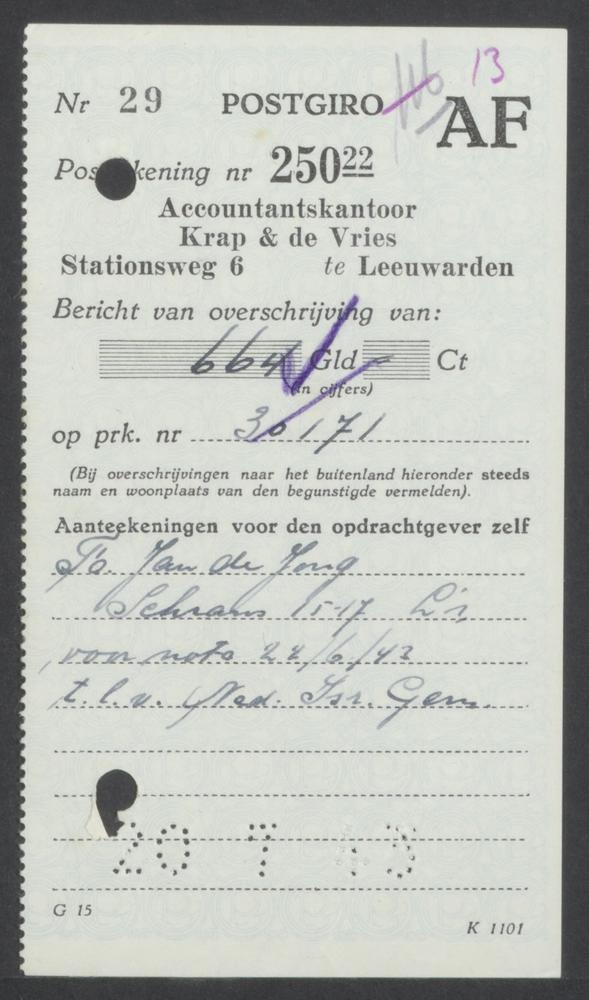 13
Nr 29 POSTGIRO AF
Pos kening nr 25022
Accountantskantoor
Krap & de Vries
Stationsweg 6 te Leeuwarden
Bericht van overschrijving van:
664 Gld - Ct
(in cijfers)
op prk. nr 30171
(Bij overschrijvingen naar het buitenland hieronder steeds
naam en woonplaats van den begunstigde vermelden).
Aanteekeningen voor den opdrachtgever zelf
Fa. Jan de Jong
Schrans 15-17
voor nota 22/6/43
t.l.v. Ned. Isr. Gem.
20 7 43
G 15
K 1101